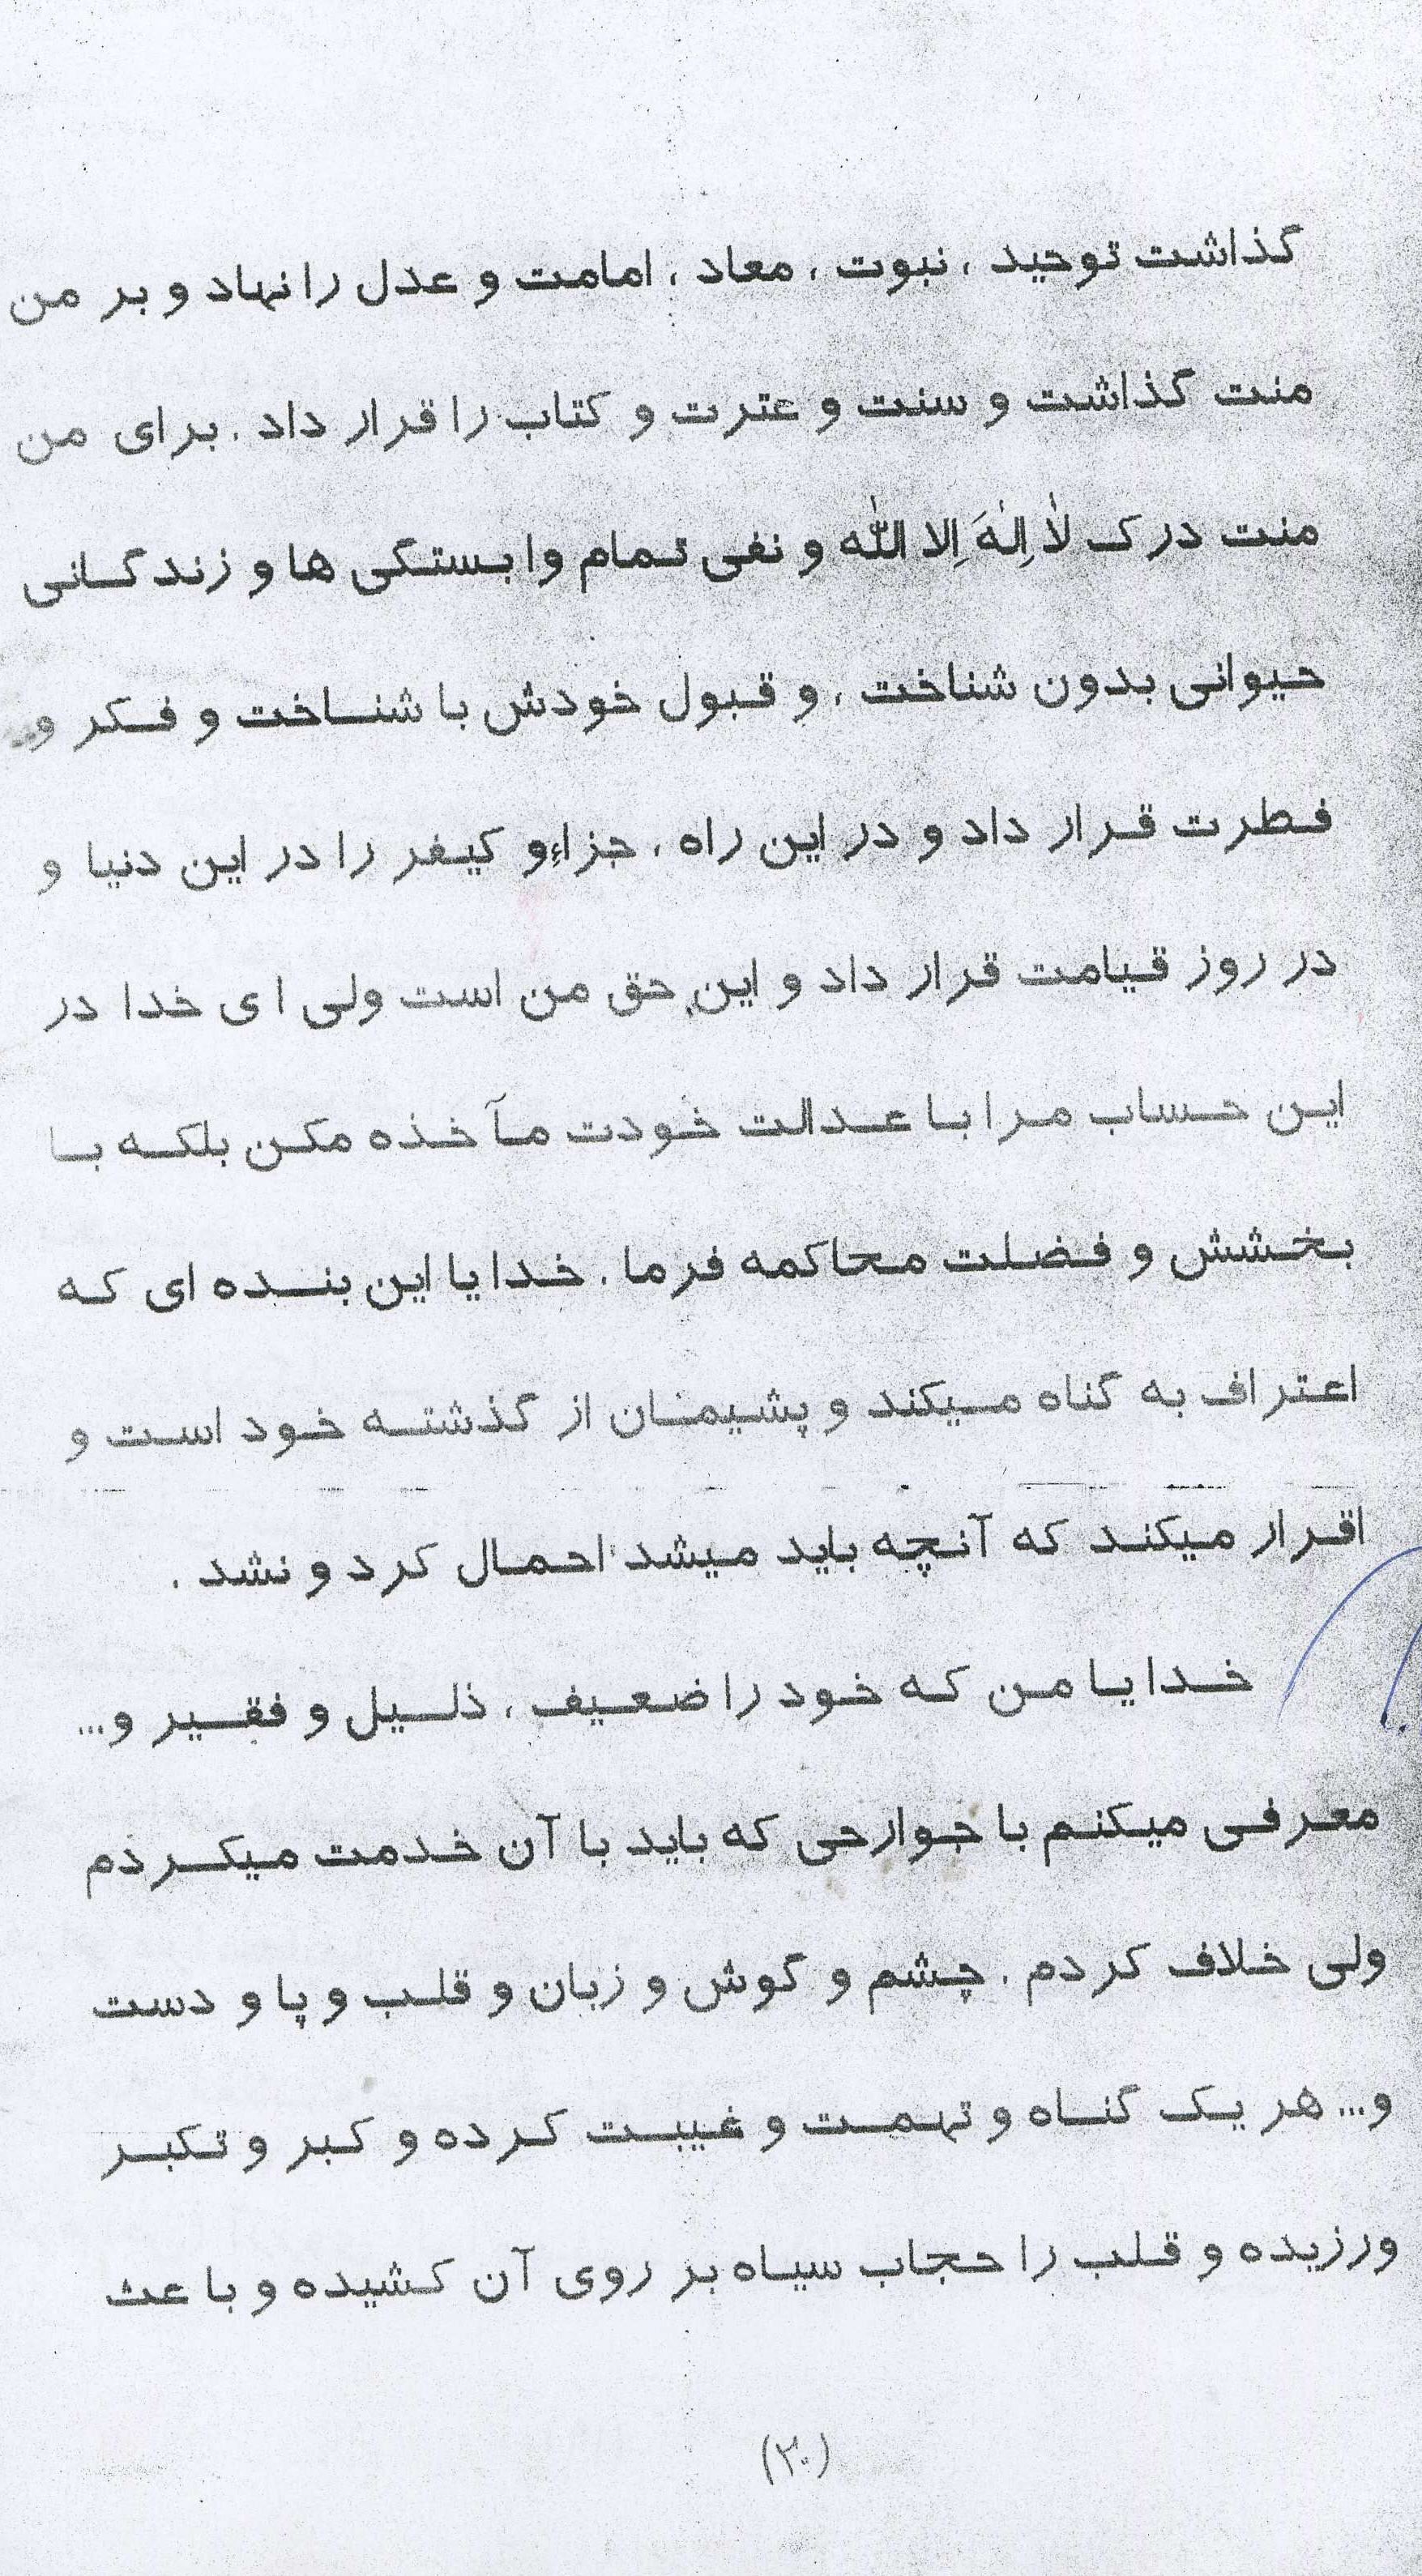 گذاشت توحید ، نبوت ، معاد ، امامت و عدل را نهاد و بر من
منت گذاشت و سنت و عترت و کتاب را قرار داد . برای من
منت درک لاٰ اِلٰهَ اِلا اللّٰه و نفی تمام وابستگی ها و زندگانی
حیوانی بدون شناخت ، و قبول خودش با شناخت و فکر و
فطرت قرار داد و در این راه ، جزاءِ و کیفر را در این دنیا و
در روز قیامت قرار داد و این حق من است ولی ای خدا در
این حساب مرا با عدالت خودت مآخذه مکن بلکه با
بخشش و فضلت محاکمه فرما . خدایا این بنده ای که
اعتراف به گناه میکند و پشیمان از گذشته خود است و
اقرار میکند که آنچه باید میشد احمال کرد و نشد .
خدایا من که خود را ضعیف ، ذلیل و فقیر و...
معرفی میکنم با جوارحی که باید با آن خدمت میکردم
ولی خلاف کردم . چشم و گوش و زبان و قلب و پا و دست
و... هر یک گناه و تهمت و غیبت کرده و کبر و تکبر
ورزیده و قلب را حجاب سیاه بر روی آن کشیده و باعث
(۲۰)